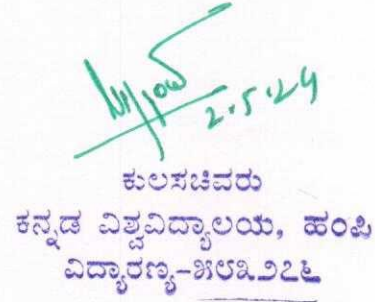 2.5.24
ಕುಲಸಚಿವರು
ಕನ್ನಡ ವಿಶ್ವವಿದ್ಯಾಲಯ, ಹಂಪಿ
ವಿದ್ಯಾರಣ್ಯ-೫೮೩೨೭೬